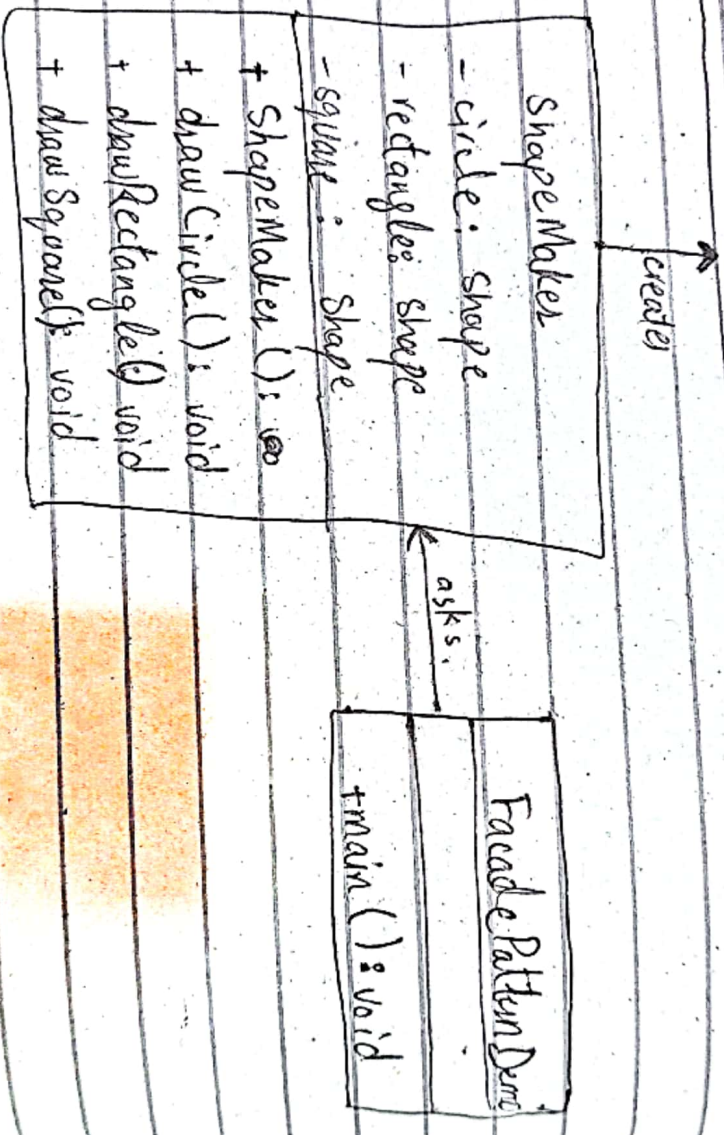 creates
ShapeMaker
- circle: Shape
- rectangle: Shape
- square: Shape
+ ShapeMaker ():
+ drawCircle(): void
+ drawRectangle() void
+ drawSquare(): void
asks.
FacadePatternDemo
+main(): void